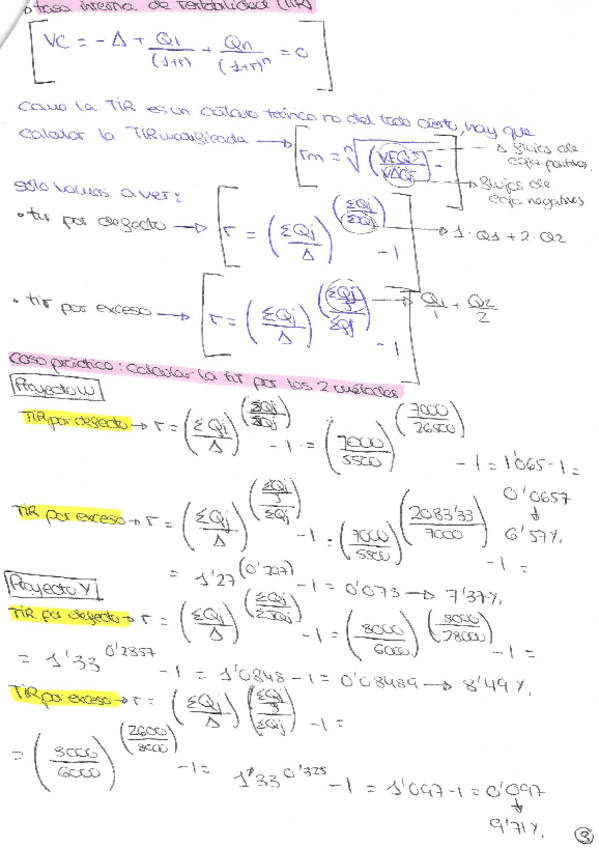 tasa interna de rentabilidad (TIR)
VC = -Δ + Q1/(1+r) + Qn/(1+r)^n = 0
como la TIR es un cálculo teórico no del todo cierto, hay que
calcular la TIR modificada → rm = ⁿ√(VFQj/VAQj) -
→ flujos de caja positivos
→ flujos de caja negativos
sólo vamos a ver:
• tir por defecto → r = (ΣQj/Δ)^(ΣQj/ΣjQj) - 1
→ 1·Q1 + 2·Q2
• tir por exceso → r = (ΣQj/Δ)^((ΣQj/j)/ΣQj) - 1
→ Q1/1 + Q2/2
Caso práctico: Calcular la tir por los 2 métodos
Proyecto W
TIR por defecto → r = (ΣQj/Δ)^(ΣQj/ΣjQj) - 1 = (7000/5500)^(7000/26500) - 1 = 1'065 - 1 =
0'0657
↓
6'57%
TIR por exceso → r = (ΣQj/Δ)^((ΣQj/j)/ΣQj) - 1 = (7000/5500)^(2083'33/7000) - 1 =
= 1'27^(0'297) - 1 = 0'073 → 7'37%
Proyecto Y
TIR por defecto → r = (ΣQj/Δ)^(ΣQj/ΣjQj) - 1 = (8000/6000)^(8000/28000) - 1 =
= 1'33^0'2857 - 1 = 1'0848 - 1 = 0'08489 → 8'49%
TIR por exceso → r = (ΣQj/Δ)^((ΣQj/j)/ΣQj) - 1 =
= (8000/6000)^(2600/8000) - 1 = 1'33^0'325 - 1 = 1'097 - 1 = 0'097
↓
9'71%
③